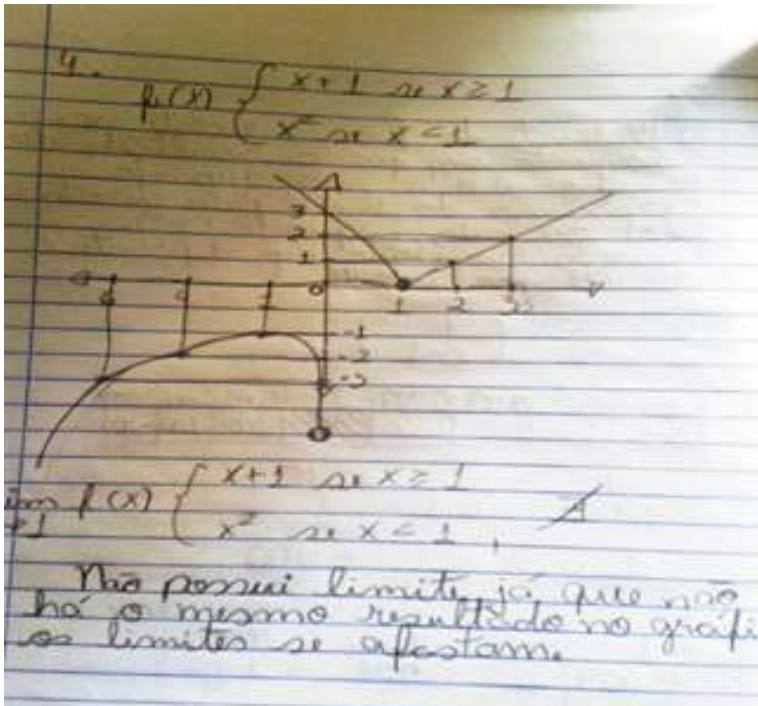 4.
f(x) { x + 1 se x ≥ 1
x² se x < 1
3
2
1
0
1 2 3
-1
-2
-3
lim f(x) { x+1 se x ≥ 1
→1 x² se x < 1,
Não possui limite, já que não
há o mesmo resultado no gráfi
os limites se afastam.